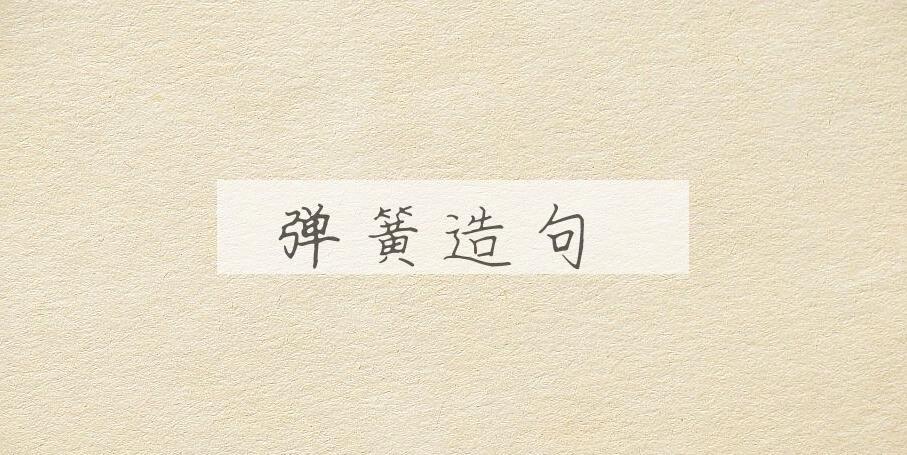 弹簧造句